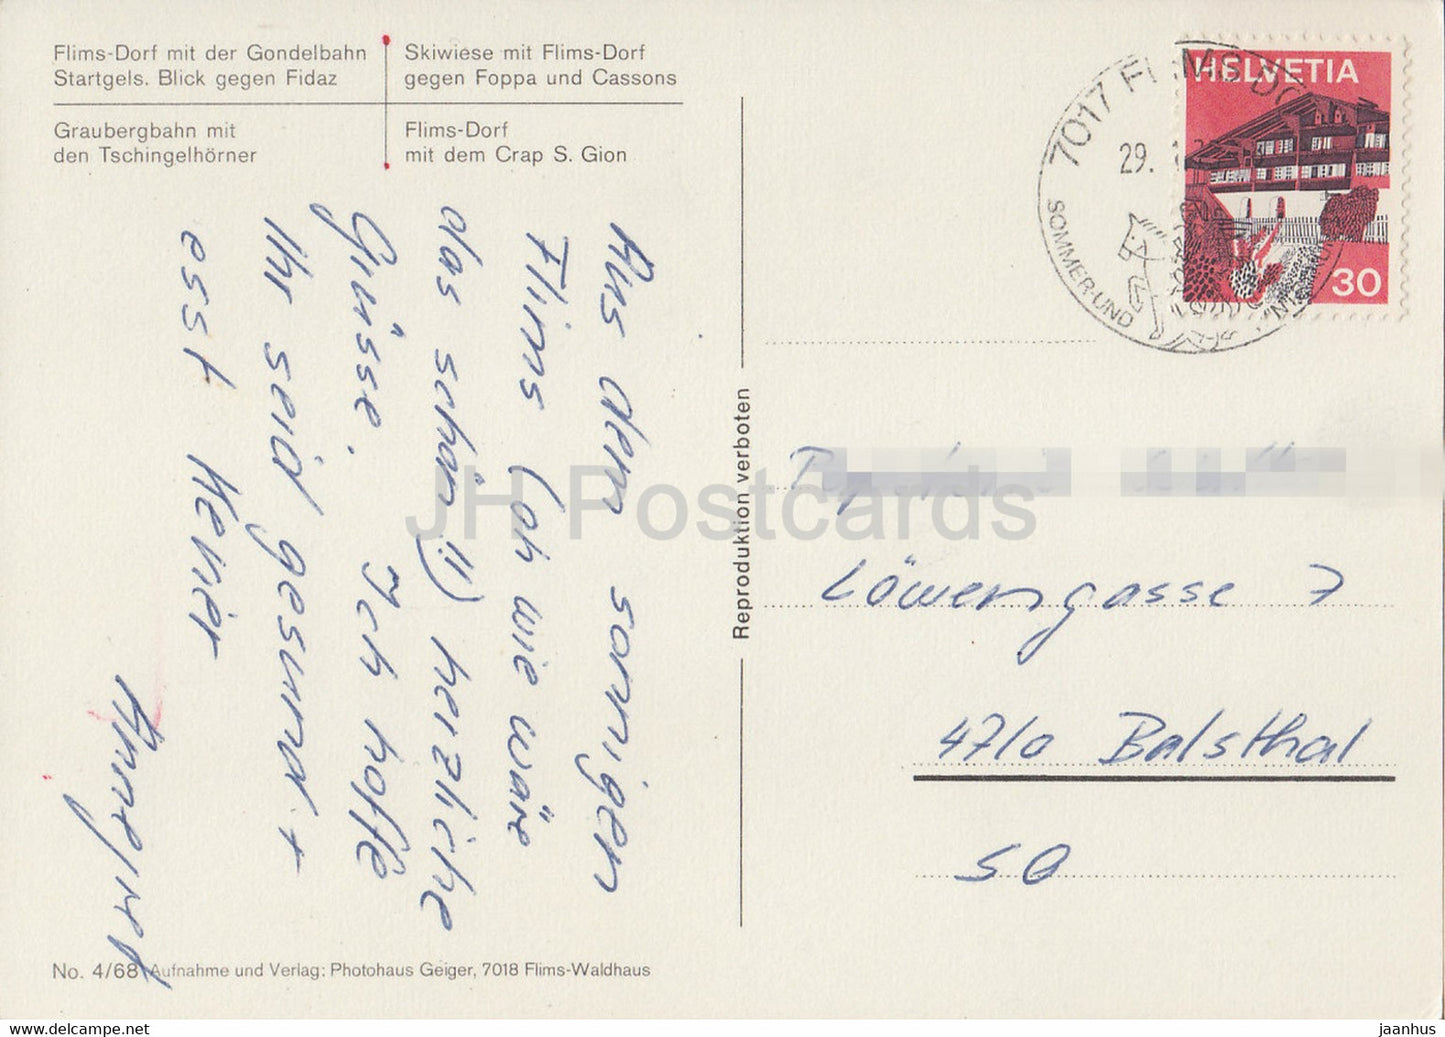 Flims-Dorf mit der Gondelbahn
Startgels. Blick gegen Fidaz
Skiwiese mit Flims-Dorf
gegen Foppa und Cassons
Graubergbahn mit
den Tschingelhörner
Flims-Dorf
mit dem Crap S. Gion
Aus dem sonnigen
Flims (oh wie wäre
das schön!!) herzliche
Grüsse. Ich hoffe
Ihr seid gesund +
esst
No. 4/68 Aufnahme und Verlag: Photohaus Geiger, 7018 Flims-Waldhaus
Reproduktion verboten
HELVETIA
30
7017 FLIMS DO
29.
SOMMER-UND
Löwengasse 7
4710 Balsthal
SO
JH Postcards
my-sore.com
jaanhus